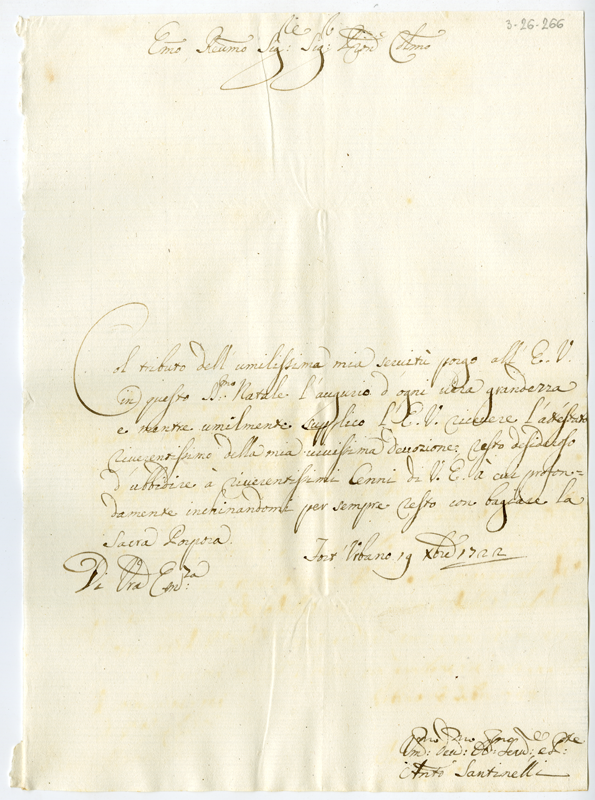 3-26-266
Emo Reumo Sig:re Sig:
Col tributo dell'umilissima mia servitù porgo all'E. V.
in questo S.mo Natale l'augurio d'ogni vera grandezza
e mentre umilmente supplico l'E. V. ricevere l'attestato
riverentissimo della mia vivissima devozione; resto desideroso
d'ubbidire à riverentissimi Cenni di V. E. à cui profon-
damente inchinandomi per sempre resto con baciare la
Sacra Porpora.
Fort'Urbano 19 Xbre 1722
Di Vra Em:za
Anto Santinelli